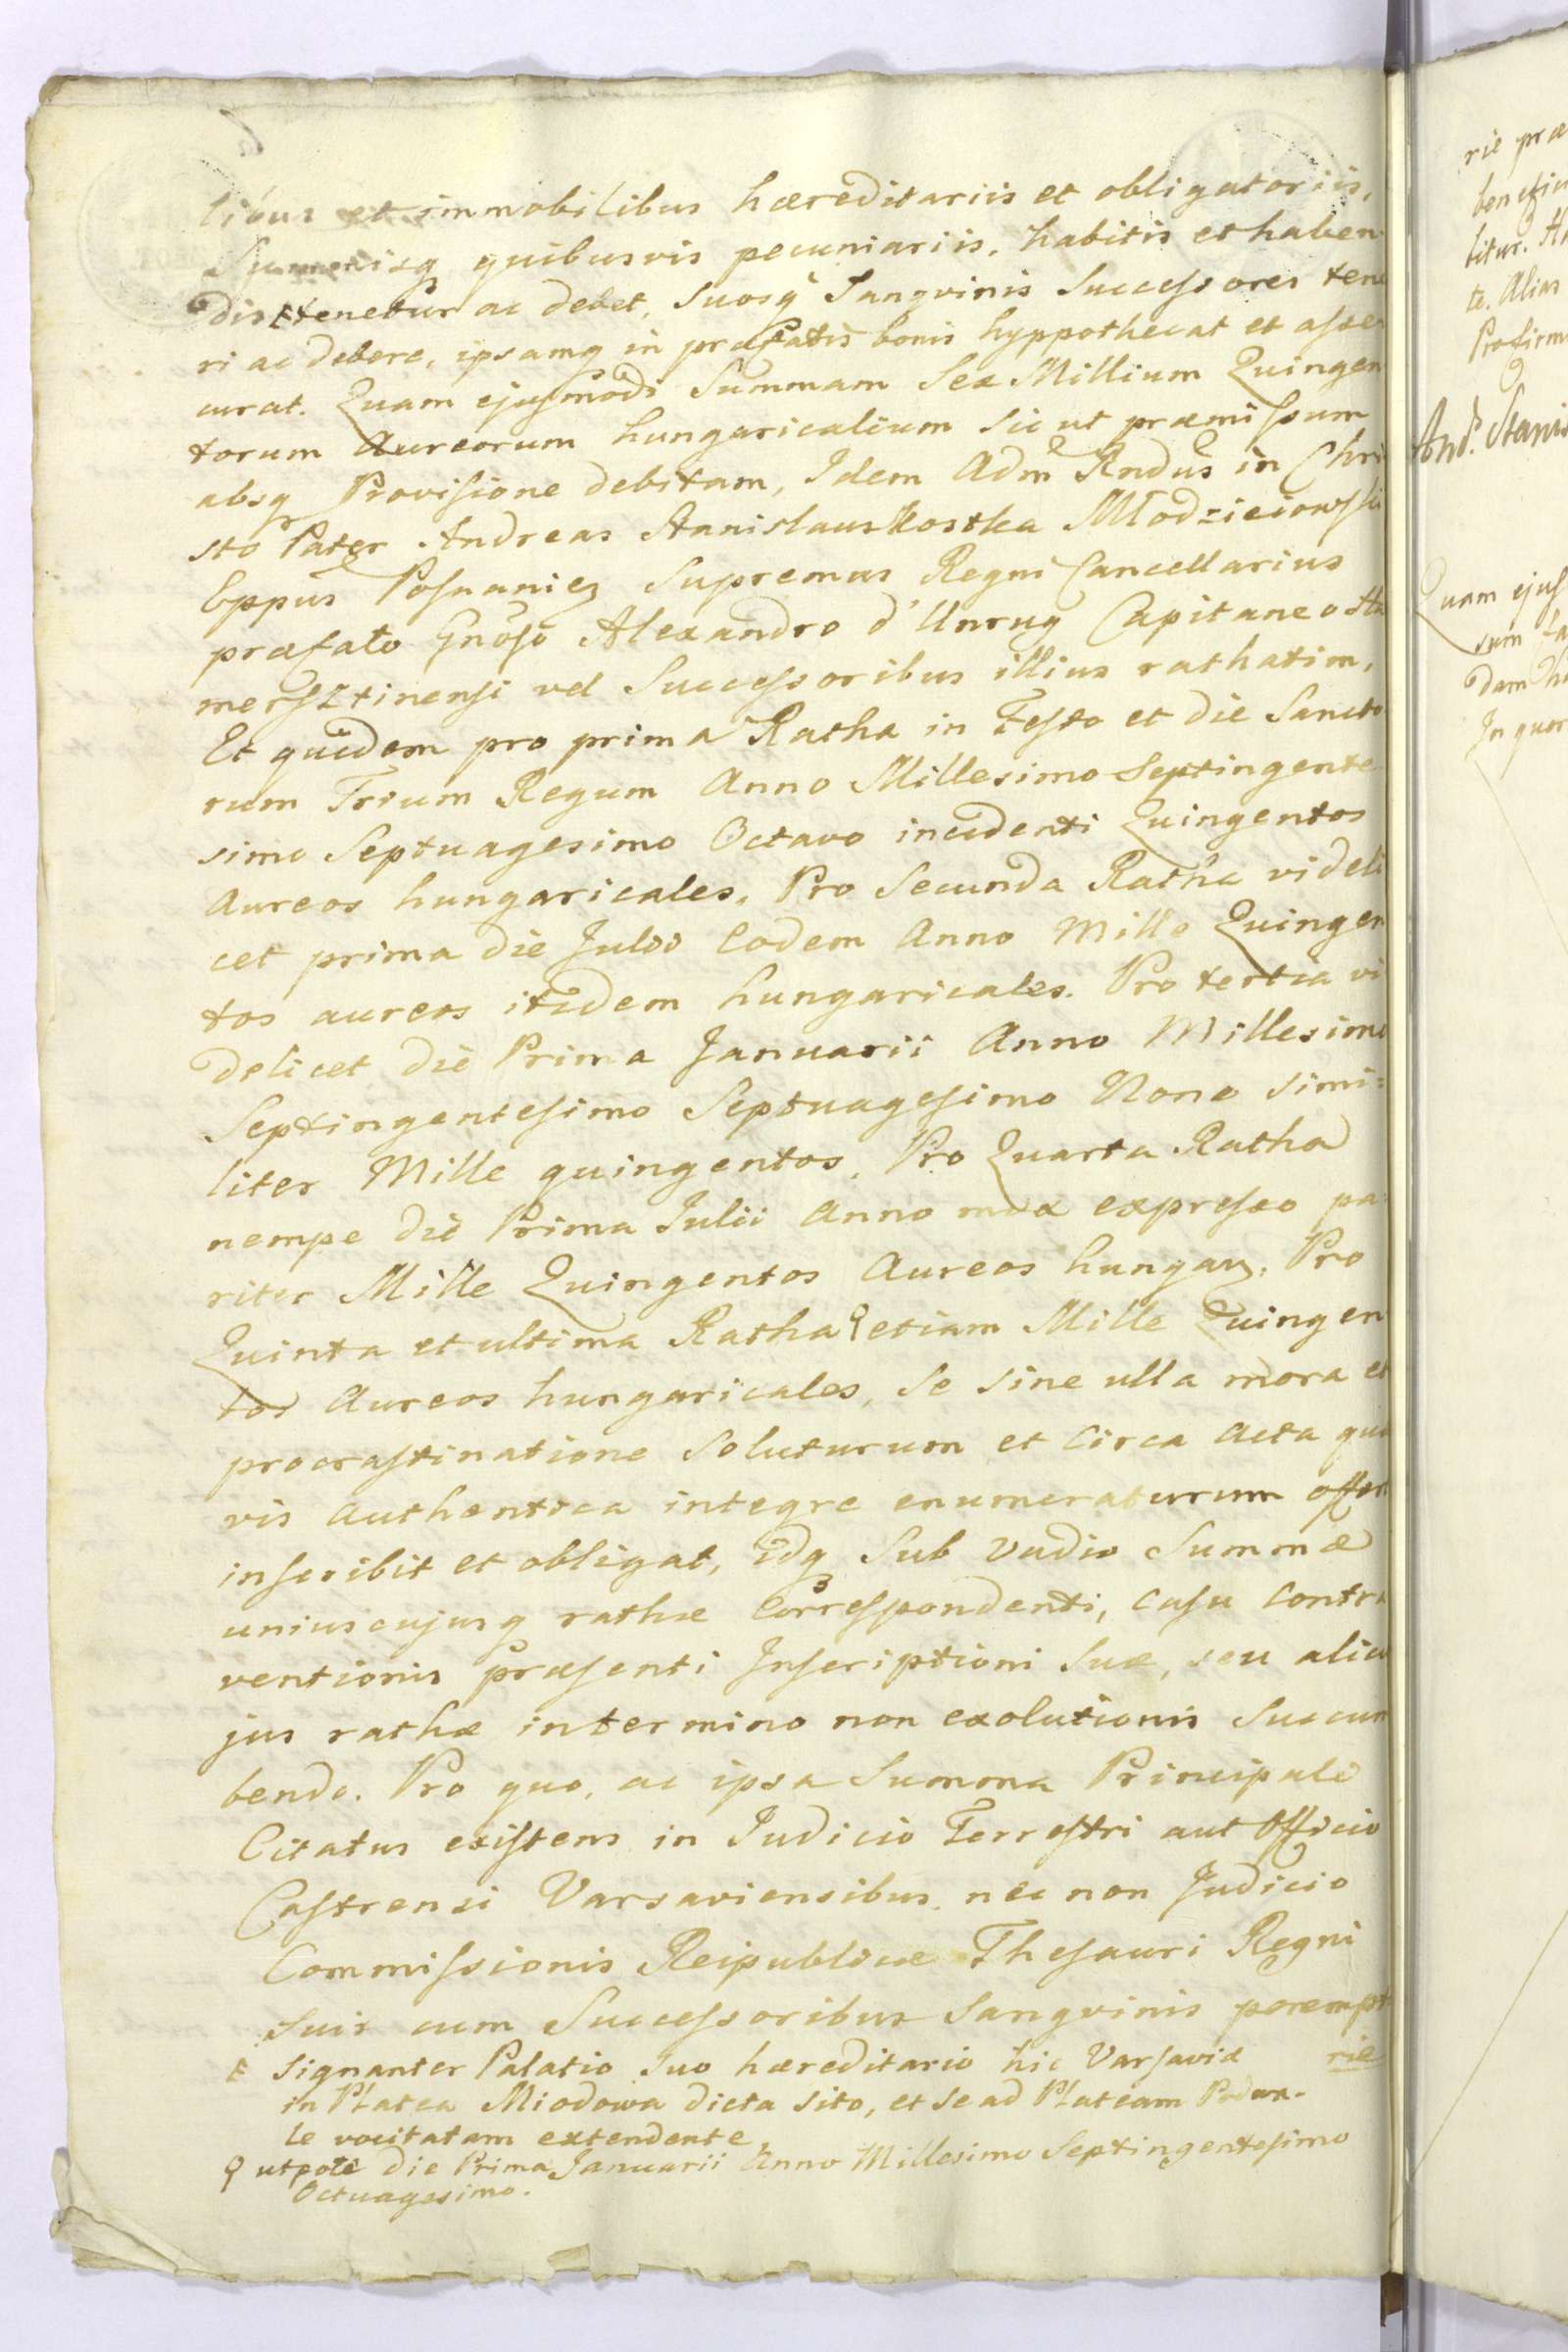 libus et immobilibus hæreditariis et obligatoriis,
Summisq quibusvis pecuniariis, habitis et haben
dis tenetur ac debet, suosq Sangvinis Successores tene
ri ac debere, ipsamq in præfatis bonis hyppothecat et asse
curat. Quam ejusmodi Summam Sex Millium Quingen
torum Aureorum hungaricalium sic ut præmissum
absq Provisione debitam, Idem Adm Rndus in Chri
sto Pater Andreas Stanislaus Kostka Młodzieiowski
Eppus Posnanien Supremus Regni Cancellarius
præfato Gnoso Alexandro d'Unrug Capitaneo Ha
mersztinensi vel Successoribus illius rathatim,
Et quidem pro prima Ratha in Festo et die Sancto
rum Trium Regum Anno Millesimo Septingente
simo Septuagesimo Octavo incidenti Quingentos
Aureos hungaricales, Pro Secunda Ratha videli
cet prima die Julii Eodem Anno Mille Quingen
tos aureos itidem hungaricales. Pro tertia vi
delicet die Prima Januarii Anno Millesimo
Septingentesimo Septuagesimo Nono simi=
liter Mille quingentos, Pro Quarta Ratha
nempe die Prima Julii Anno mox expresso pa
riter Mille Quingentos Aureos hungar, Pro
Quinta et ultima Ratha etiam Mille Quingen
tos Aureos hungaricales, se sine ulla mora et
procrastinatione soluturum et Circa Acta quæ
vis Authentica integre enumeraturum offert
inscribit et obligat, idq Sub Vadio Summæ
uniuscujusq rathæ Correspondenti, Casu Contra
ventionis præsenti Inscriptioni Suæ, seu alicu
jus rathæ in termino non exolutionis Succum
bendo. Pro quo, ac ipsa Summa Principali
Citatus existens in Judicio Terrestri aut Officio
Castrensi Varsaviensibus, nec non Judicio
Commissionis Reipublicæ Thesauri Regni
suis cum Successoribus Sangvinis perempto
rie
signanter Palatio suo hæreditario hic Varsaviæ
in Platea Miodowa dicta sito, et se ad Plateam Podwa-
le vocitatam extendente,
utpote die Prima Januarii Anno Millesimo Septingentesimo
Octuagesimo.
rie præ
benefici
bitur.
te. Alias
Pro firm
And. Stanis
Quam ejus
sum
dam
In quor